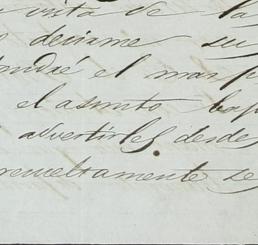 vista de la
decirme su
el mas
el asunto baj
advertirles desde
resueltamente se